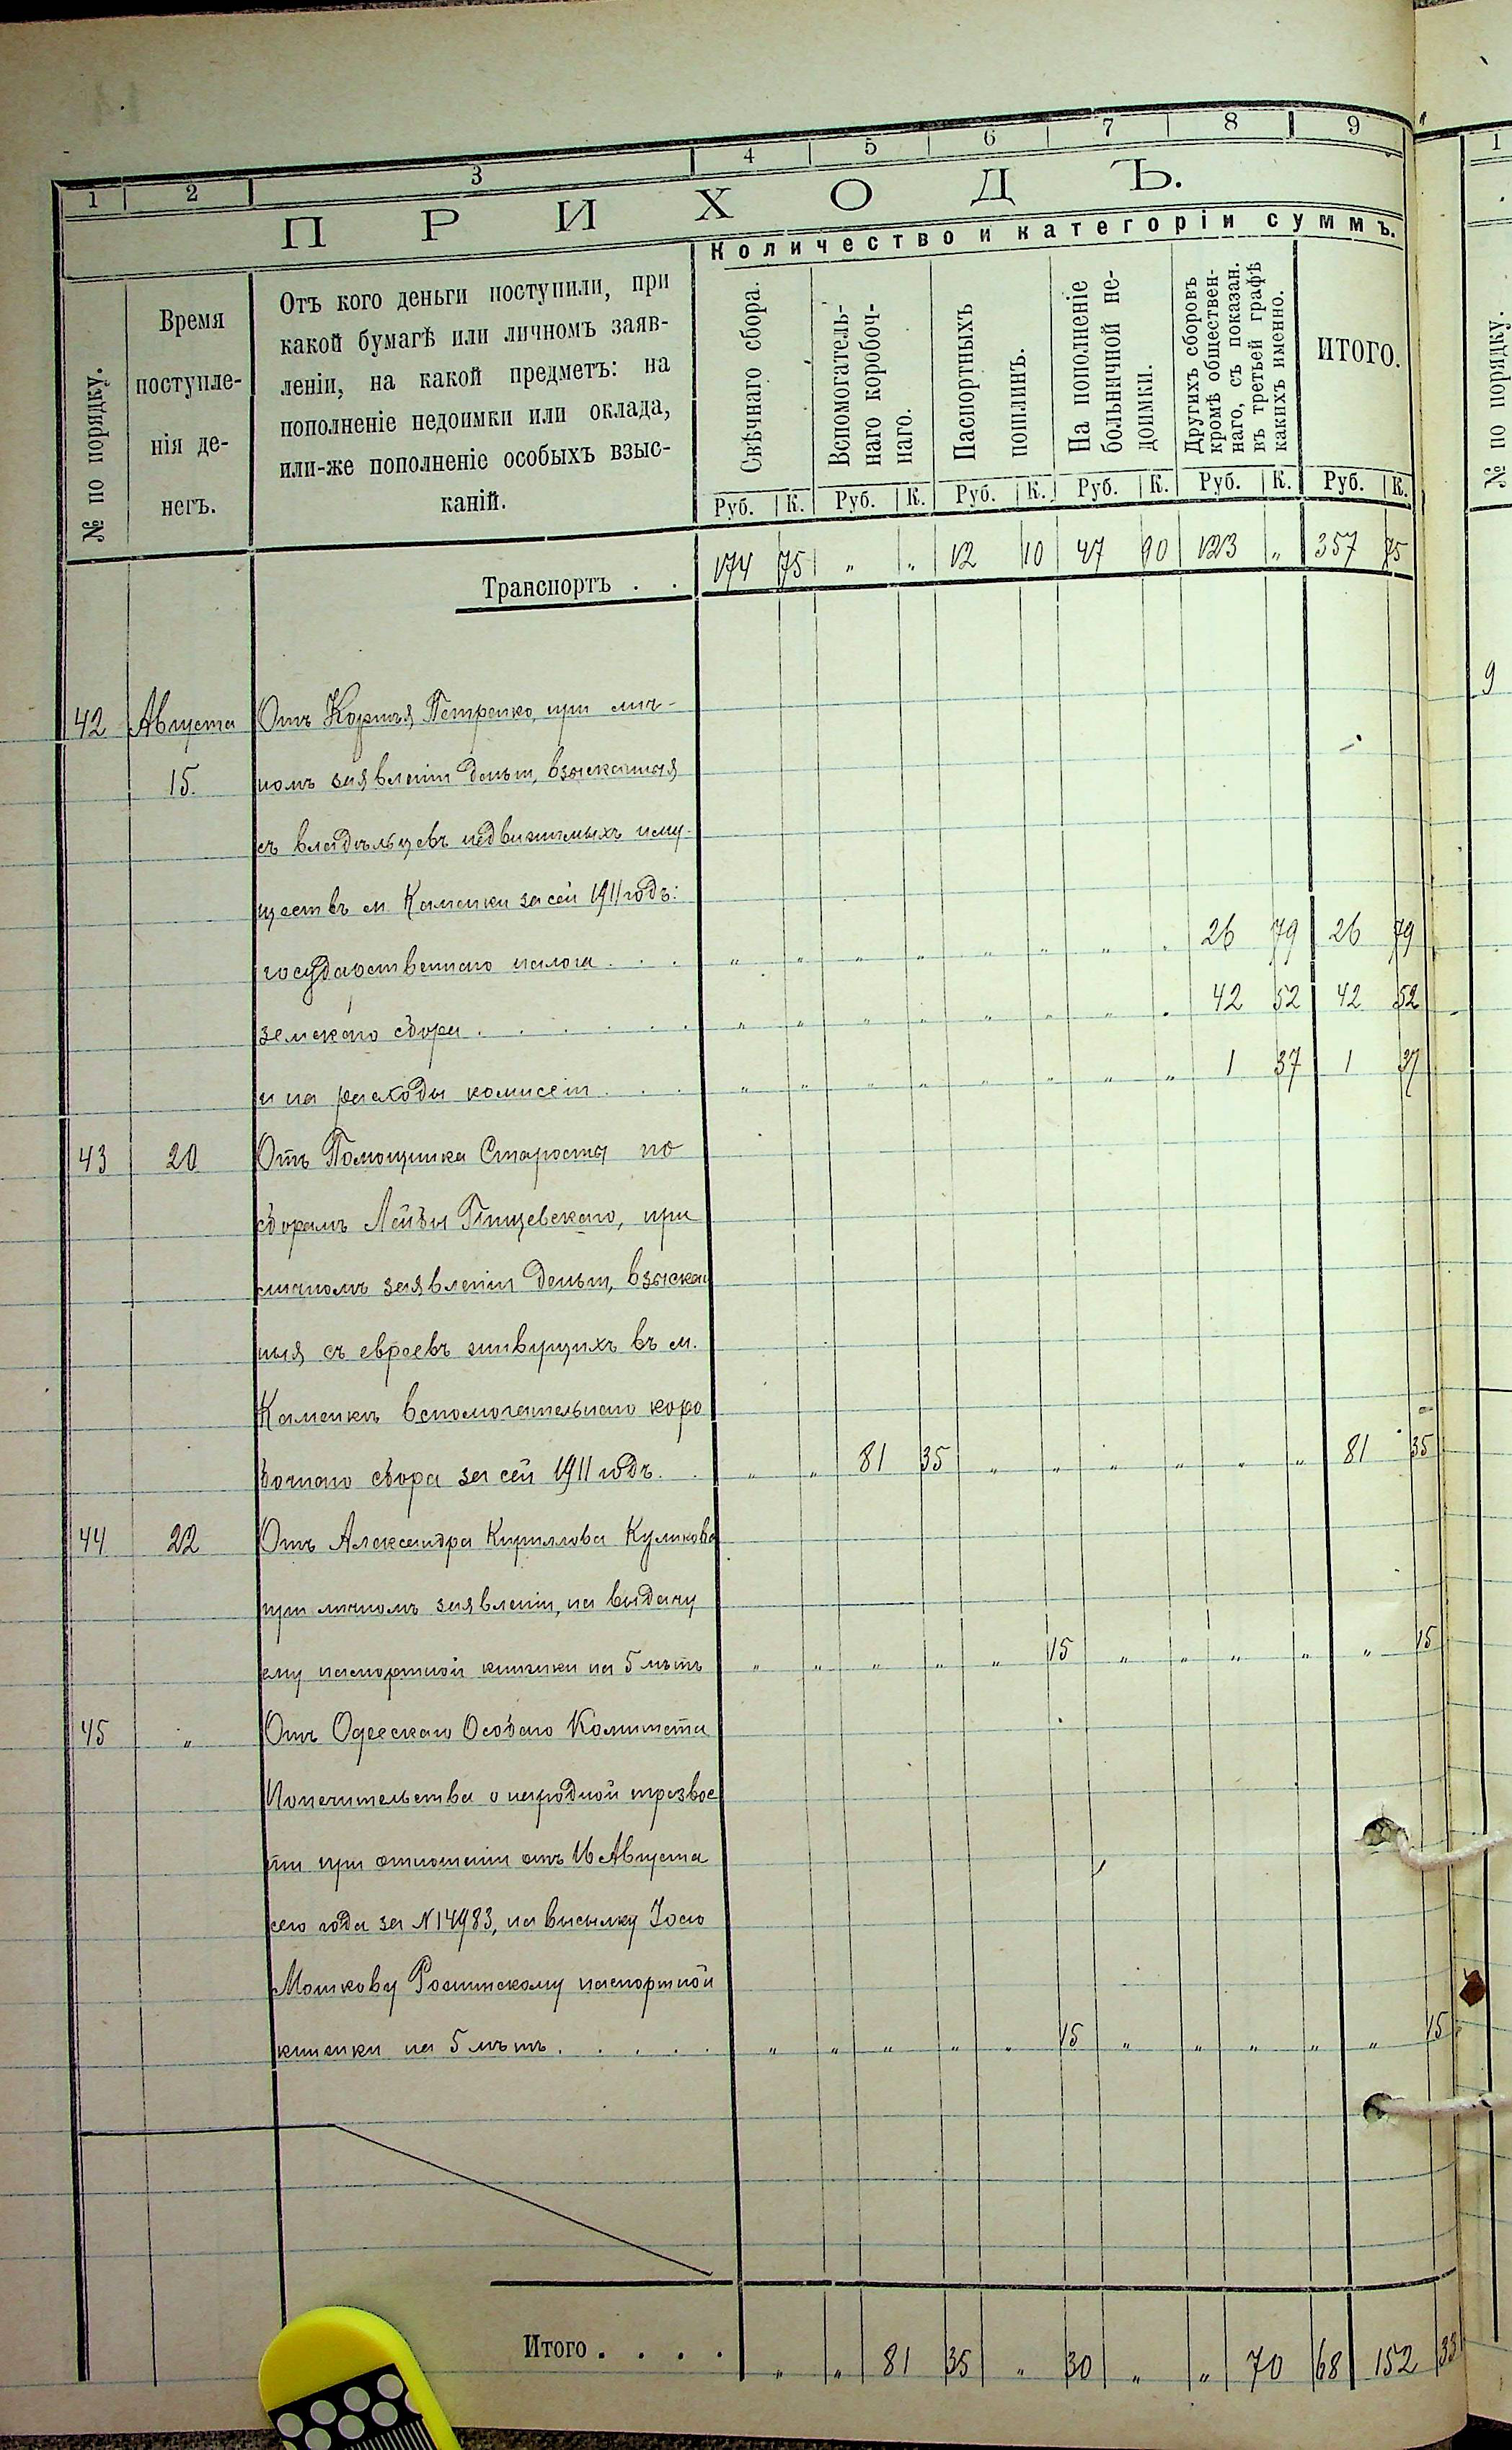 1 2 3 4 5 6 7 8 9
ПРИХОДЪ.
Количество и категоріи суммъ.
№ по порядку.
Время
поступле-
нія де-
негъ.
Отъ кого деньги поступили, при
какой бумагѣ или личномъ заяв-
леніи, на какой предметъ: на
пополненіе недоимки или оклада,
или-же пополненіе особыхъ взыс-
каній.
Свѣчнаго сбора.
Вспомогатель-
наго коробоч-
наго.
Паспортныхъ
пошлинъ.
На пополненіе
больничной не-
доимки.
Другихъ сборовъ
кромѣ обществен-
наго, съ показан.
въ третьей графѣ
какихъ именно.
ИТОГО.
Руб. К. Руб. К. Руб. К. Руб. К. Руб. К. Руб. К.
Транспортъ . . 174 75 „ „ 12 10 47 90 123 „ 357 75
42 Августа Отъ Корнѣя Петренко, при лич-
15. номъ заявленіи деньги, взысканныя
съ владѣльцевъ недвижимыхъ иму-
ществъ м. Каменки за сей 1911 годъ:
государственнаго налога . . . „ „ „ „ „ „ „ „ 26 79 26 79
земскаго сбора . . . . . . „ „ „ „ „ „ „ „ 42 52 42 52
и на расходы комисеіи . . . „ „ „ „ „ „ „ „ 1 37 1 37
43 20 Отъ Помощника Старосты по
сборамъ Лейбы Пищевскаго, при
личномъ заявленіи деньги, взыскан
ныя съ евреевъ живущихъ въ м.
Каменкѣ вспомогательнаго коро
бочнаго сбора за сей 1911 годъ. . „ „ 81 35 „ „ „ „ „ „ 81 35
44 22 Отъ Александра Кириллова Куликова
при личномъ заявленіи, на выдачу
ему паспортной книжки на 5 лѣтъ „ „ „ „ „ 15 „ „ „ „ „ 15
45 „ Отъ Одесскаго Особаго Комитета
Попечительства о народной трезвос
ти при отношеніи отъ 16 Августа
сего года за N 14983, на высылку
Мошкову паспортной
книжки на 5 лѣтъ . . . . . „ „ „ „ „ 15 „ „ „ „ „ 15
Итого . . . . „ „ 81 35 „ 30 „ „ 70 68 152 33
1
№ по порядку.
9